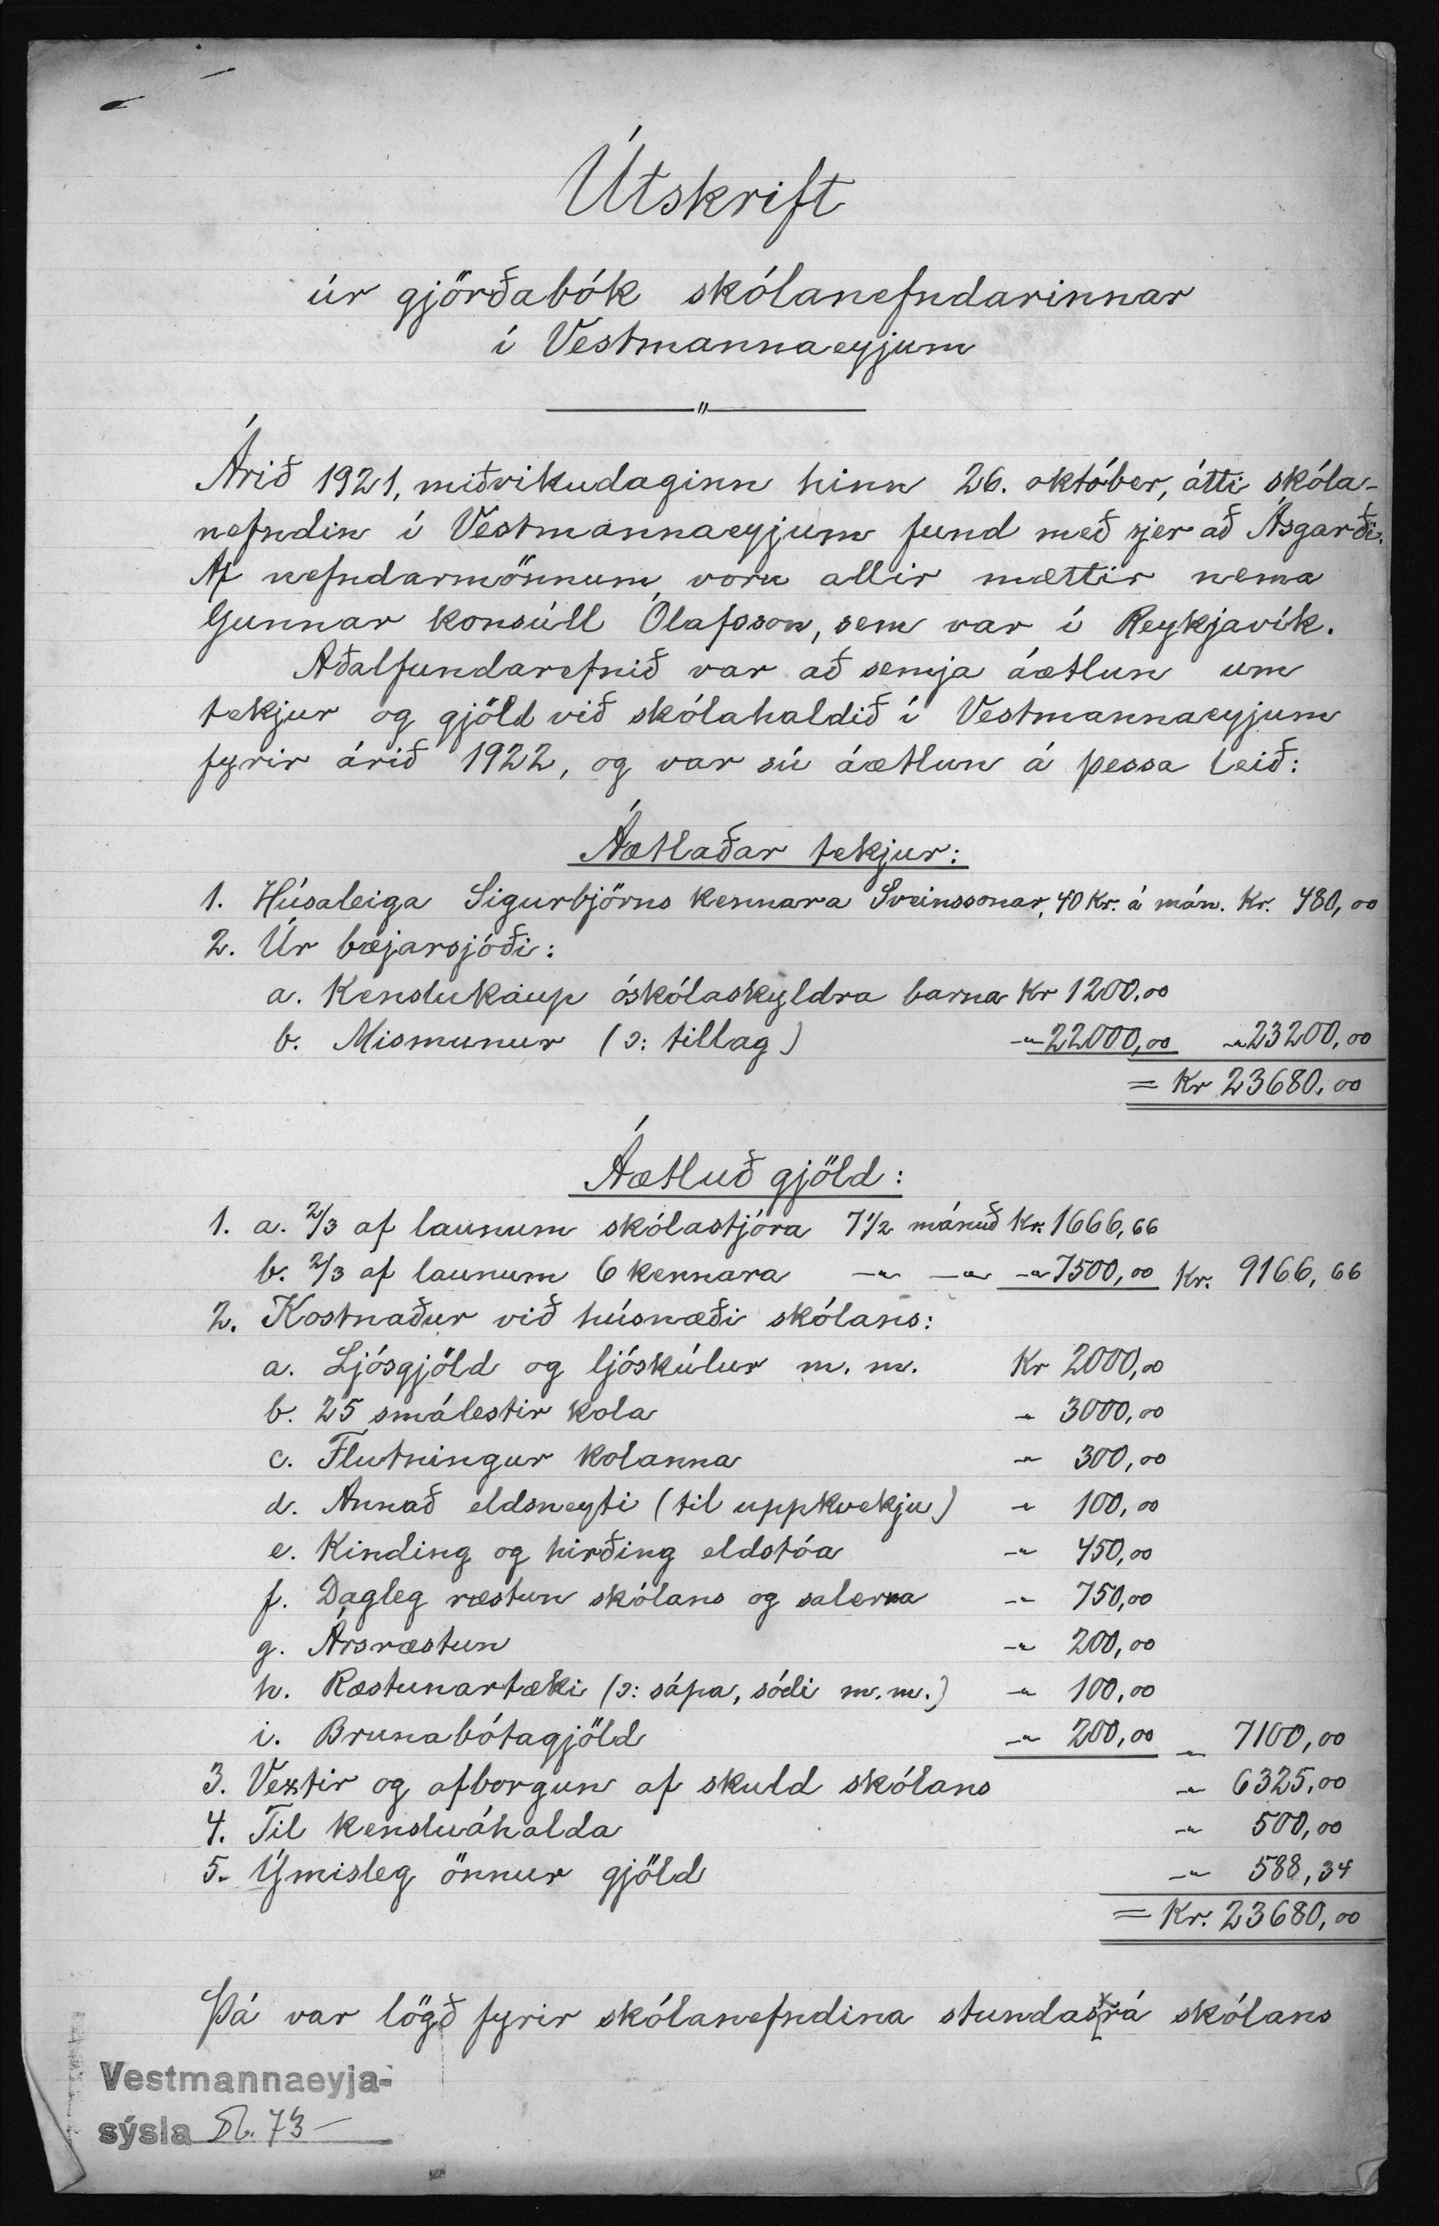 Útskrift
úr gjörðabók skólanefndarinnar
í Vestmannaeyjum
Árið 1921, miðvikudaginn hinn 26. október, átti skóla-
nefndin í Vestmannaeyjum fund með sjer að Ásgarði.
Af nefndarmönnum voru allir mættir nema
Gunnar konsúll Ólafsson, sem var í Reykjavík.
Aðalfundarefnið var að semja áætlun um
tekjur og gjöld við skólahaldið í Vestmannaeyjum
fyrir árið 1922, og var sú áætlun á þessa leið:
Áætlaðar tekjur:
1. Húsaleiga Sigurbjörns kennara Sveinssonar, 40 Kr. á mán. Kr. 480,00
2. Úr bæjarsjóði:
a. Kenslukaup óskólaskyldra barna Kr 1200,00
b. Mismunur (ɔ: tillag) -"- 22000,00 -"- 23200,00
= Kr 23680,00
Áætluð gjöld:
1. a. 2/3 af launum skólastjóra 7 1/2 mánuð Kr. 1666,66
b. 2/3 af launum 6 kennara -"- -"- -"- 7500,00 Kr. 9166,66
2. Kostnaður við húsnæði skólans:
a. Ljósgjöld og ljóskúlur m. m. Kr 2000,00
b. 25 smálestir kola -"- 3000,00
c. Flutningur kolanna -"- 300,00
d. Annað eldsneyti (til uppkvekju) -"- 100,00
e. Kinding og hirðing eldstóa -"- 450,00
f. Dagleg ræstun skólans og salerna -"- 750,00
g. Ársræstun -"- 200,00
h. Ræstunartæki (ɔ: sápa, sódi m.m.) -"- 100,00
i. Brunabótagjöld -"- 200,00 -"- 7100,00
3. Vextir og afborgun af skuld skólans -"- 6325,00
4. Til kensluáhalda -"- 500,00
5. Ýmisleg önnur gjöld -"- 588,34
= Kr. 23680,00
Þá var lögð fyrir skólanefndina stundaskrá skólans
Vestmannaeyja-
sýsla 73